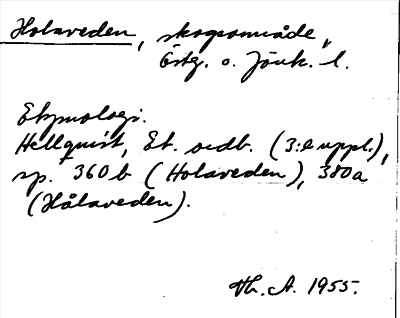 Holaveden, skogsområde,
Östg. o. Jönk. l.
Etymologi.
Hellquist, Et. ordb. (3:e uppl.),
sp. 360 b (Holaveden), 380a
(Hålaveden).
Th. A. 1955.